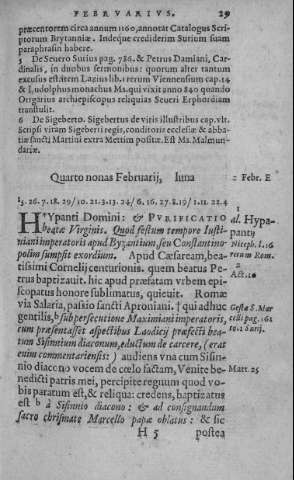 FEBRVARIVS. 29
præcentorem circa annum 1160, annotat Catalogus Scri-
ptorum Brytanniæ. Indeque crediderim Surium suam
paraphrasin habere.
5 De Seuero Surius pag. 786. & Petrus Damiani, Car-
dinalis, in duobus sermonibus: quorum alter tantum
excusus est iterm Lazius lib. rerum Viennensium cap. 14
& Ludolphus monachus Ma. qui vixit anno 840 quando
Otgarius archiepiscopus reliquias Seueri Erphordiam
transtulit.
6 De Sigeberto. Sigebertus de viris illustribus cap. vlt.
Scripsi vitam Sigeberti regis, conditoris ecclesiæ & abba-
tiæ sancti Martini extra Mettim positæ. Est Ms. Malmun-
dariæ.
Quarto nonas Februarij, luna 2 Febr. E
15. 26. 7. 18. 29/10. 21. 3. 13. 24/6. 16. 27. 8. 19/1. 11. 22. 4
HYpanti Domini: & PVRIFICATIO
beatæ Virginis. Quod festum tempore Iusti-
niani imperatoris apud Byzantium seu Constantino-
polim sumpsit exordium. Apud Cæsaream, bea-
tissimi Cornelij centurionis. quem beatus Pe-
trus baptizauit. hic apud præfatam vrbem epi-
scopatus honore sublimatus, quieuit. Romæ
via Salaria, passio sancti Aproniani. qui adhuc
gentilis, b sub persecutione Maximiani imperatoris,
cum præsentasset aspectibus Laodicij præfecti bea-
tum Sisinnium diaconum, eductum de carcere, (erat
enim commentariensis:) audiens vna cum Sisin-
nio diacono vocem de cœlo factam, Venite be-
nedicti patris mei, percipite regnum quod vo-
bis paratum est, & reliqua: credens, baptizatus
est b à Sisinnio diacono: & ad consignandum
sacro chrismate Marcello papæ oblatus: & sic
H 5 postea
ad. Hypa-
pantῃ
Niceph. l. 16
rerum Rom.
Act. 10
Gesta S. Mar
celli pag. 162
to. 1 Surij.
Matt. 25